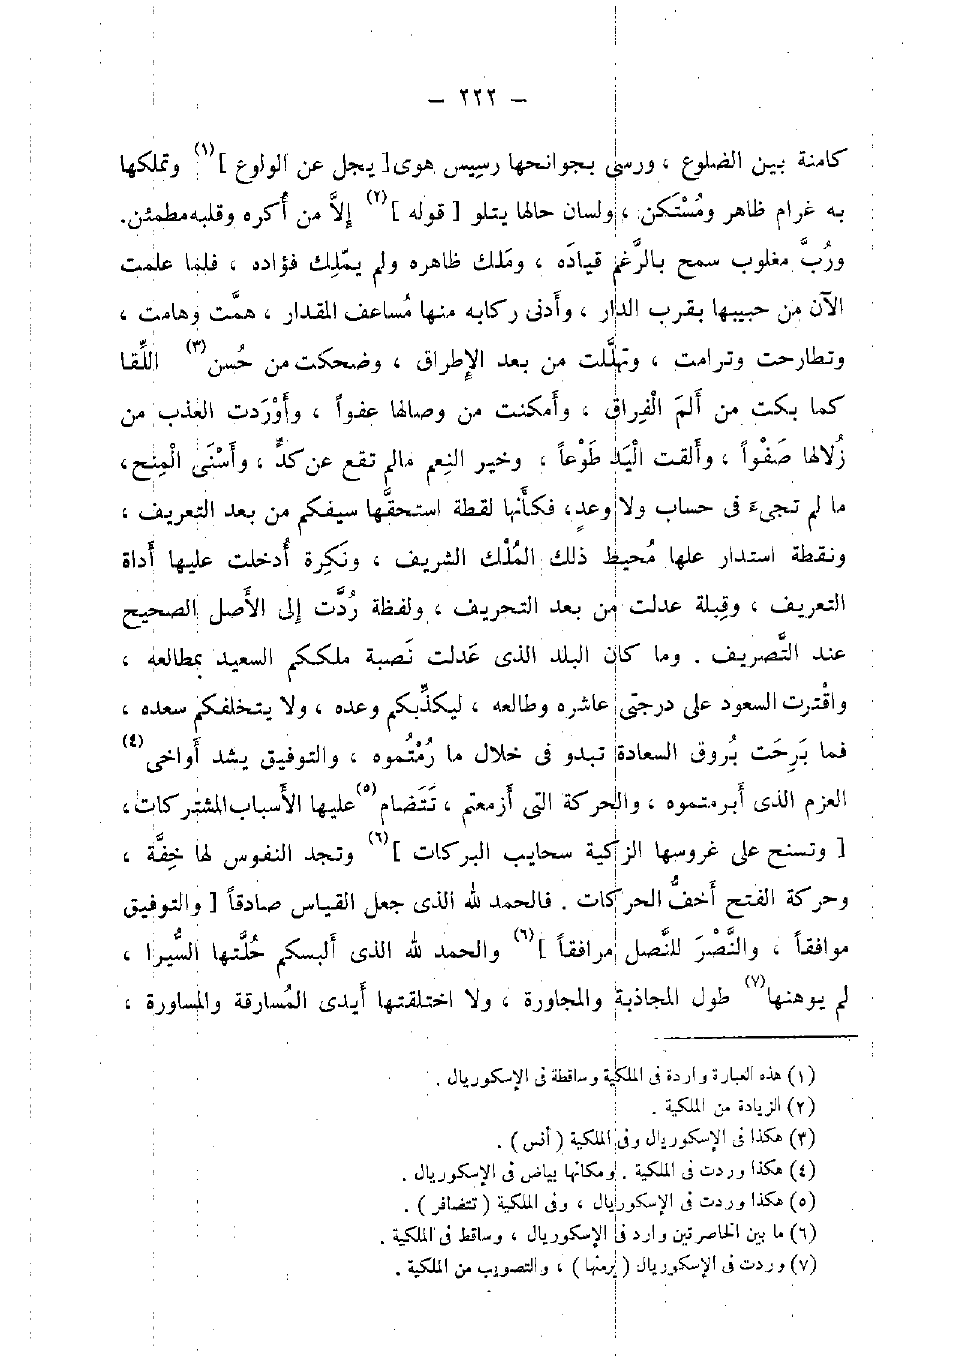 — ٢٢٢ —
كامنة بين الضلوع ، ورسى بجوانحها رسيس هوى [ يجل عن الولوع ](١) وتملكها
به غرام ظاهر ومُسْتَكن ، ولسان حالها يتلو [ قوله ](٢) إلاَّ من أُكره وقلبه مطمئن.
ورُبَّ مغلوب سمح بالرَّغم قيادَه ، ومَلك ظاهره ولم يمْلِك فؤاده ، فلما علمت
الآن من حبيبها بقرب الدار ، وأدنى ركابه منها مُساعف المقدار ، همَّت وهامت ،
وتطارحت وترامت ، وتهلَّلت من بعد الإِطراق ، وضحكت من حُسن(٣) اللِّقا
كما بكت من ألَمَ الْفِراق ، وأمكنت من وصالها عفواً ، وأوْرَدت العذب من
زُلالها صَفْواً ، وألقت الْيَد طَوْعاً ، وخير النِعم مالم تقع عن كدٍّ ، وأسْنَى الْمِنح،
ما لم تجىءَ فى حساب ولا وعدٍ، فكأنها لقطة استحقَّها سيفكم من بعد التعريف ،
ونقطة استدار علها مُحيط ذلك المُلْك الشريف ، ونَكِرة أُدخلت عليها أداة
التعريف ، وقِبلة عدلت من بعد التحريف ، ولفظة رُدَّت إلى الأَصل الصحيح
عند التَّصريف . وما كان البلد الذى عَدلت نَصبة ملككم السعيد بمطالعه ،
واقْترت السعود على درجتى عاشره وطالعه ، ليكذِّبكم وعده ، ولا يتخلفكم سعده ،
فما بَرِحَت بُروق السعادة تبدو فى خلال ما رُمْتُموه ، والتوفيق يشد أَواخى(٤)
العزم الذى أَبرمتموه ، والحركة التى أزمعتم ، تَتَضام(٥) عليها الأَسباب المشتركات ،
[ وتسنح على غروسها الزكية سحايب البركات ](٦) وتجد النفوس لها خِفَّة ،
وحركة الفتح أخفُّ الحركات . فالحمد لله الذى جعل القياس صادقاً [ والتوفيق
موافقاً ، والنَّصْرَ للنَّصل مرافقاً ](٦) والحمد لله الذى ألبسكم حُلَّتها السُّيرا ،
لم يوهنها(٧) طول المجاذبة والمجاورة ، ولا اختلقتها أيدى المُسارقة والمساورة ،
(١) هذه العبارة واردة فى الملكية وساقطة فى الإسكوريال .
(٢) الزيادة من الملكية .
(٣) هكذا فى الإسكوريال وفى الملكية ( أنس ) .
(٤) هكذا وردت فى الملكية . ومكانها بياض فى الإسكوريال .
(٥) هكذا وردت فى الإسكوريال ، وفى الملكية ( تتضافر ) .
(٦) ما بين الخاصرتين وارد فى الإسكوريال ، وساقط فى الملكية .
(٧) وردت فى الإسكوريال ( يرمنها ) ، والتصويب من الملكية .